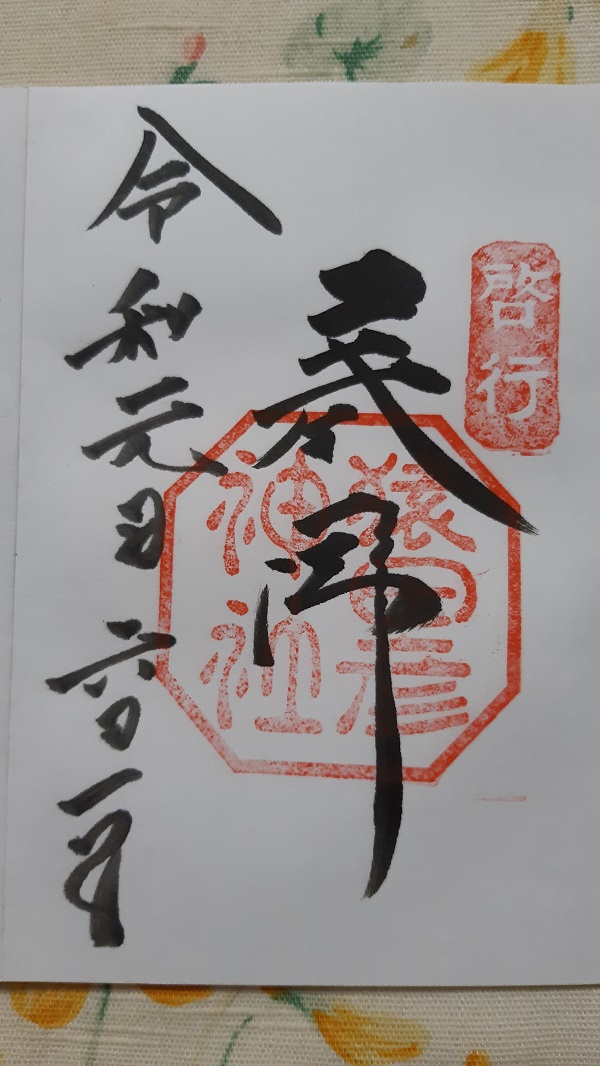 啓行
奉拝
猿田彦
神社
令和元年六月一日